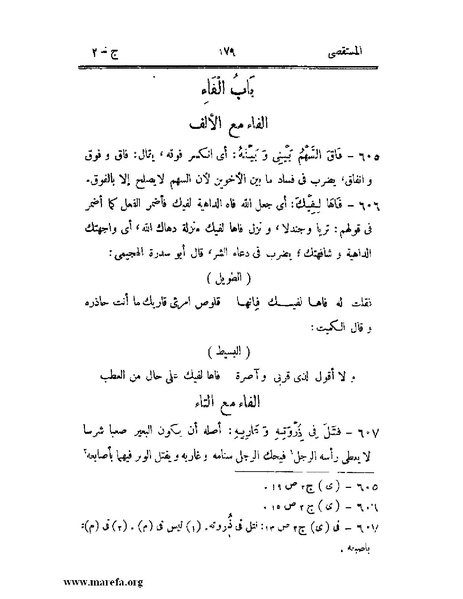 المستقصى ١٧٩ ج - ٢
بَابُ الْفَاءِ
الفاء مع الألف
٦٠٥ - فَاقَ السَّهْمُ بَيْنِى وَ بَيْنَهُ: أى انكسر فوقه، يقال: فاق و فوق
و انفاق، يضرب فى فساد ما بين الأخوين لأن السهم لايصلح إلا بالفوق.
٦٠٦ - فَاهَا لِفِيْكَ: أى جعل الله فاه الداهية لفيك فأضمر الفعل كما أضمر
فى قولهم: تربا وجندلا، و نزل فاها لفيك منزلة دهاك الله، أى واجهتك
الداهية و شافهتك؛ يضرب فى دعاء الشر، قال أبو سدرة الهجيمى:
( الطويل )
فقلت له فاها لفيـــك فإنها قلوص امرئ قاريك ما أنت حاذره
و قال الكميت:
( البسيط )
و لا أقول لذى قربى و آصرة فاها لفيك على حال من العطب
الفاء مع التاء
٦٠٧ - فَتَلَ فِى ذُرْوَتِهِ وَ غَارِبِهِ: أصله أن يكون البعير صعبا شرسا
لا يعطى رأسه الرجل فيحك الرجل سنامه و غاربه و يفتل الوبر فيهما بأصابعه
٦٠٥ - (ى) ج ٢ ص ١٩ .
٦٠٦ - (ى) ج ٢ ص ١٥ .
٦٠٧ - فى (ى) ج ٢ ص ١٣: فتل فى ذُروته. (١) ليس فى (م) . (٢) فى (م):
بأصبعه .
www.marefa.org